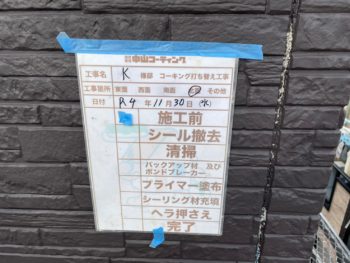 中山コーティング
工事名 K 様邸 コーキング打ち替え工事
工事箇所 東面 西面 南面 北 その他
日付 R4年11月30日(水)
施工前
シール撤去
清掃
バックアップ材 及び
ボンドブレーカー
プライマー塗布
シーリング材充填
ヘラ押さえ
完了